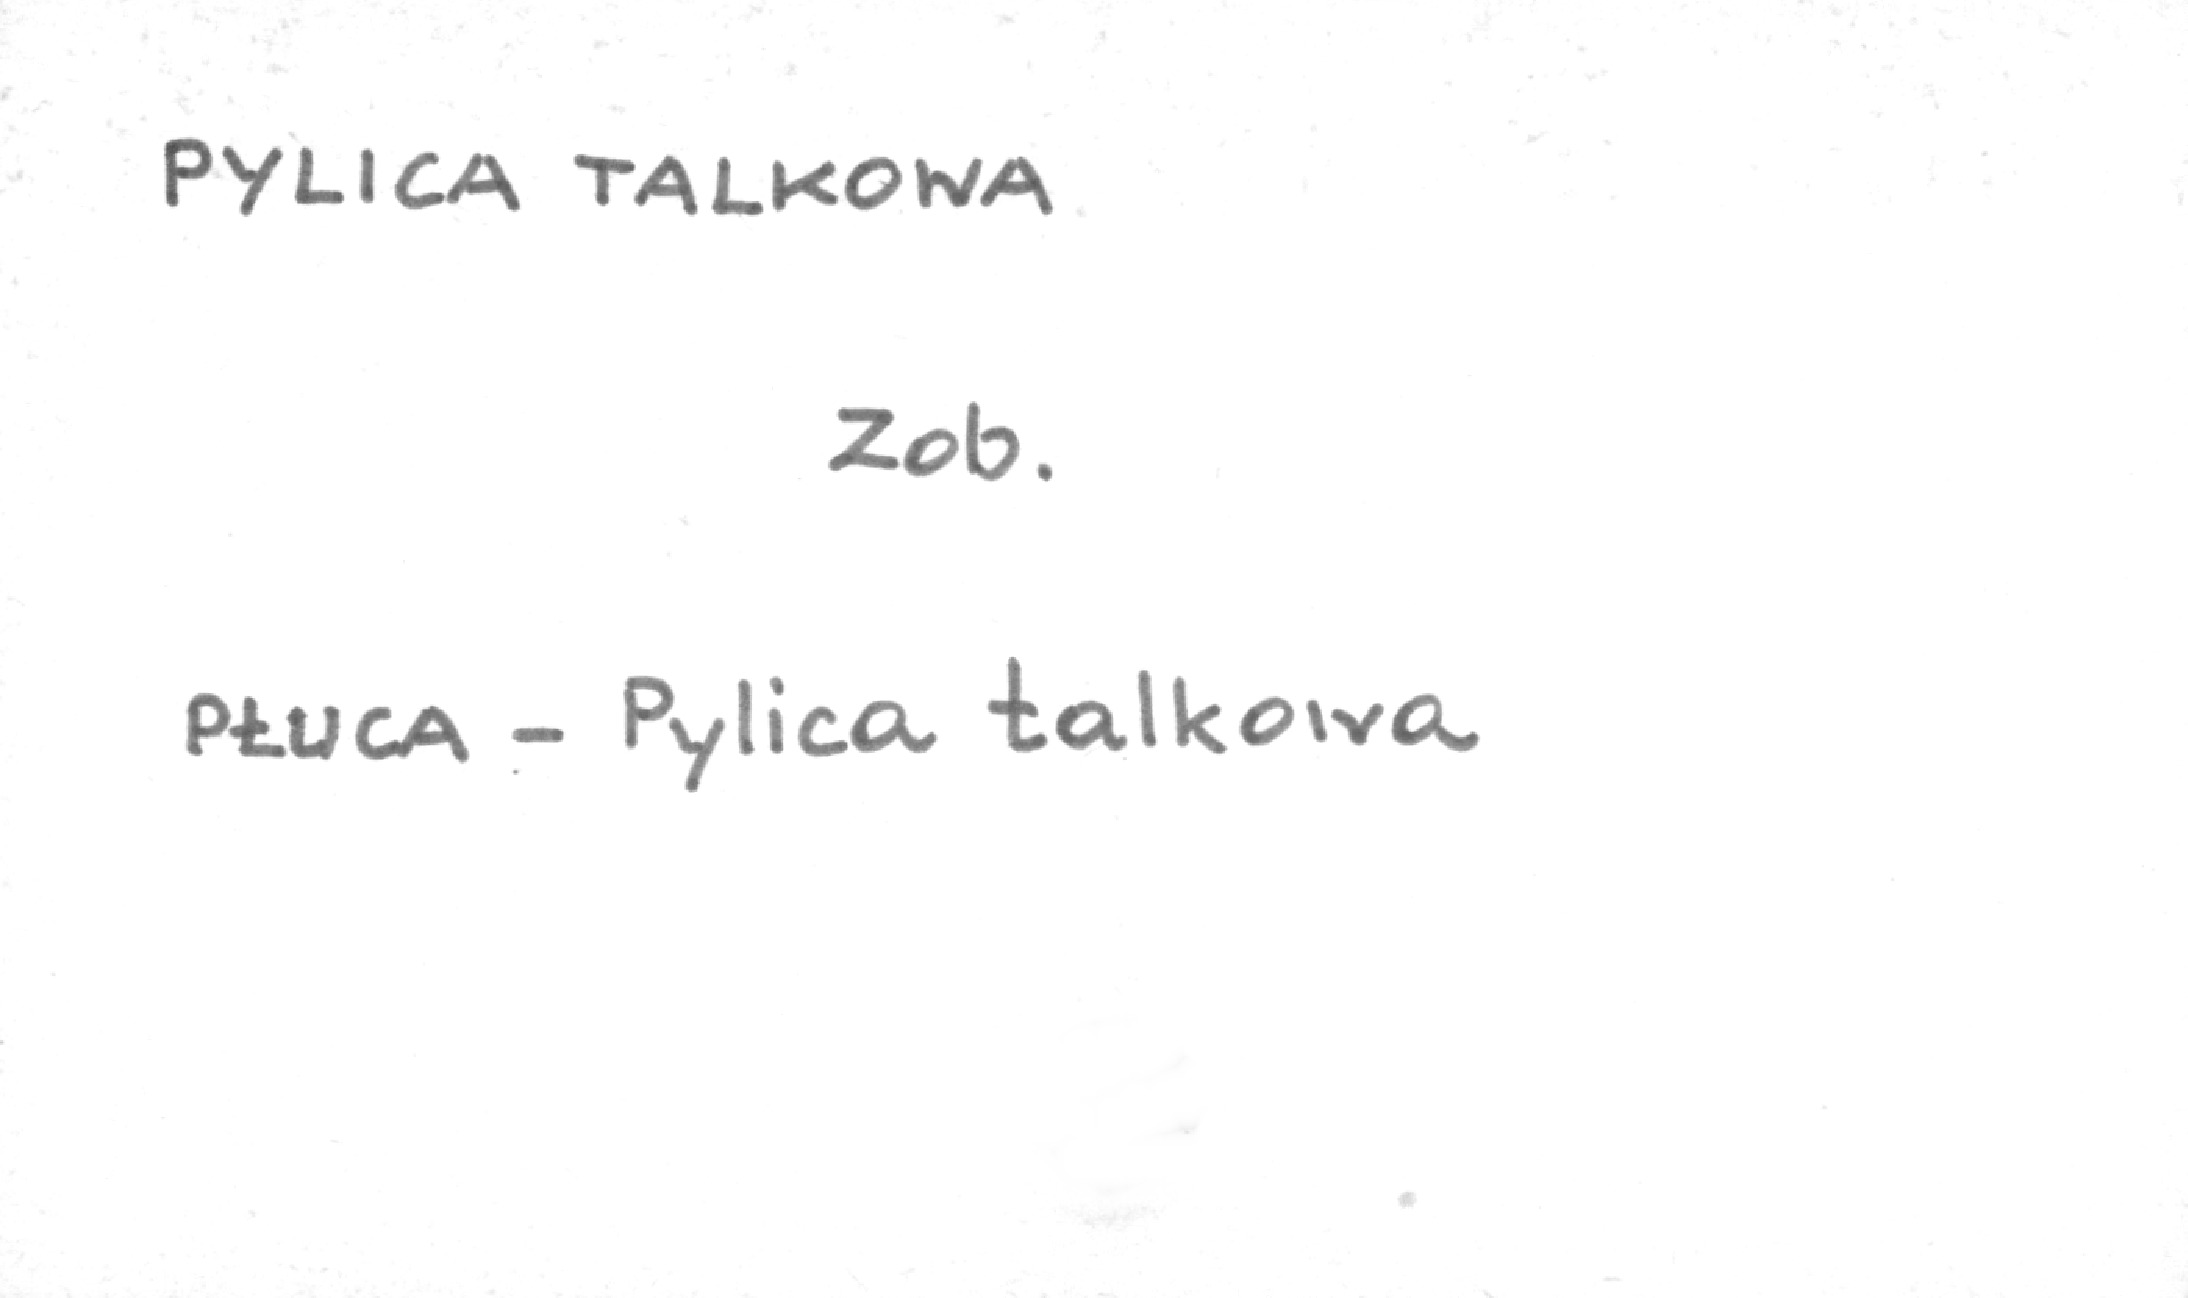 PYLICA TALKOWA
Zob.
PŁUCA - Pylica talkowa